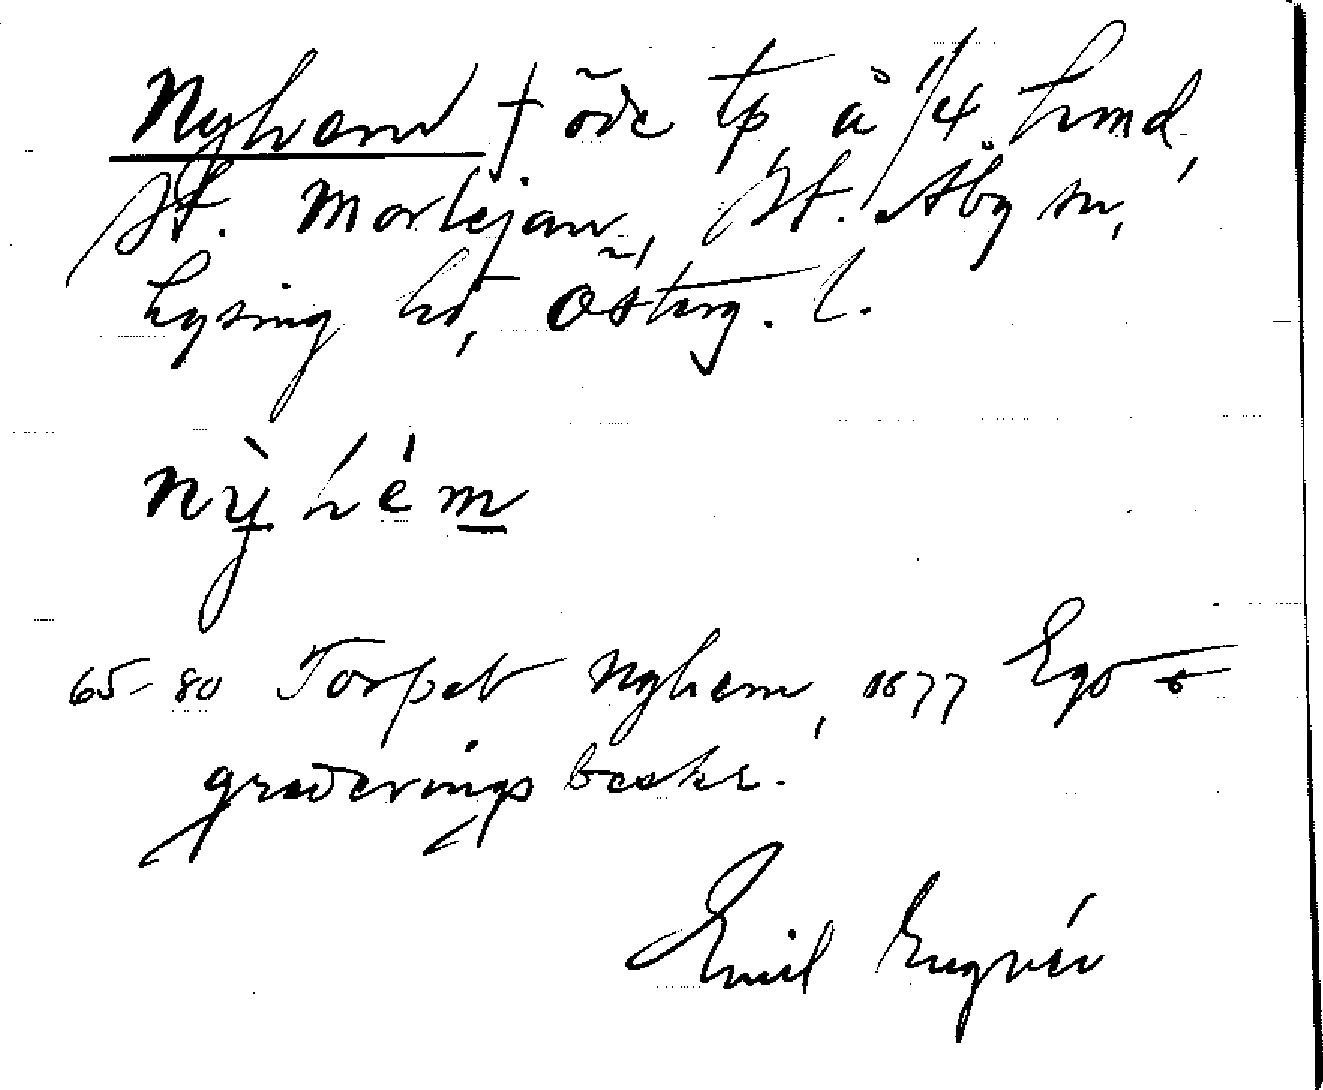 Nyhem † öde tp å 1/4 hmd,
St. Mortejan, St. Åby sn,
Lysing hd, Österg. l.
Nỳ hém
65-80 Torpet Nyhem, 1877 Ego o
graderings beskr.
Emil Engvér